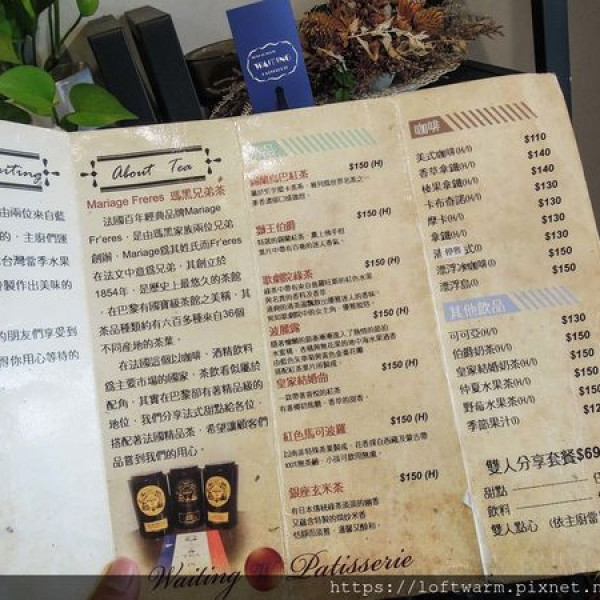 WAITING
Waiting
由兩位來自藍
的，主廚們運
台灣當季水果
製作出美味的
的朋友們享受到
得你用心等待的
About Tea
Mariage Freres 瑪黑兄弟茶
法國百年經典品牌Mariage
Fr'eres，是由瑪黑家族兩位兄弟
創辦，Mariage為其姓氏而Fr'eres
在法文中意為兄弟，其創立於
1854年，是歷史上最悠久的茶館
，在巴黎有國寶級茶館之美稱，其
茶品種類約有六百多種來自36個
不同產地的茶葉。
在法國這個以咖啡、酒精飲料
為主要市場的國家，茶飲看似屬於
配角，其實在巴黎卻有著精品級的
地位，我們分享法式甜點給各位，
搭配著法國精品茶，希望讓顧客們
品嘗到我們的用心。
$150 (H)
錫蘭烏巴紅茶
$150 (H)
獅王伯爵
特選的錫蘭紅茶，裹上佛手柑
$150 (H)
歌劇院綠茶
$150 (H)
波麗露
$150 (H)
皇家結婚曲
一款帶著喜悅的紅茶
有著櫻
$150 (H)
紅色馬可波羅
100%無茶鹼，小孩可飲用無慮。
$150 (H)
銀座玄米茶
有日本傳統綠茶淡淡的幽香
又蘊含特製的烘炒米香
恬靜而淡雅，溫馨又醇和。
咖啡
美式咖啡(H/I) $110
香草拿鐵(H/I) $140
榛果拿鐵(H/I) $140
卡布奇諾(H/I) $130
摩卡(H/I) $140
拿鐵(H/I) $130
停售 式(I) $150
漂浮冰咖啡(I) $150
漂浮島(I) $150
其他飲品
可可亞(H/I) $130
伯爵奶茶(H/I) $150
皇家結婚奶茶(H/I) $150
仲夏水果茶(H/I) $150
野莓水果茶(H/I) $150
季節果汁(I)
雙人分享套餐$69
甜點
飲料
雙人點心 (依主廚當
Waiting Patisserie
https://loftwarm.pixnet.n